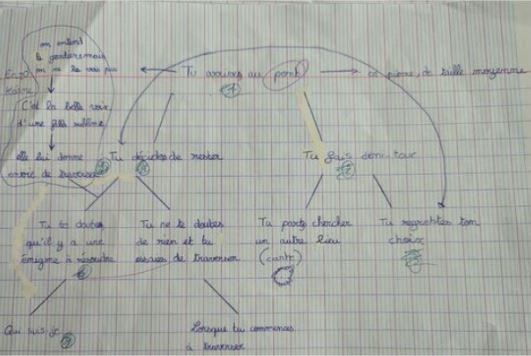 on entend
le gardien mais
on ne le voit pas
C'est la belle voix
d'une fille sublime
elle lui donne
envie de traverser
Tu arrives au pont
en pierre, de taille moyenne
Tu décides de rester
Tu fais demi-tour
Tu te doutes
qu'il y a une
énigme à résoudre
Tu ne te doutes
de rien et tu
essaies de traverser
Tu parts chercher
un autre lieu
(carte)
Tu regrettes ton
choix
Qui suis-je
Lorsque tu commences
à traverser